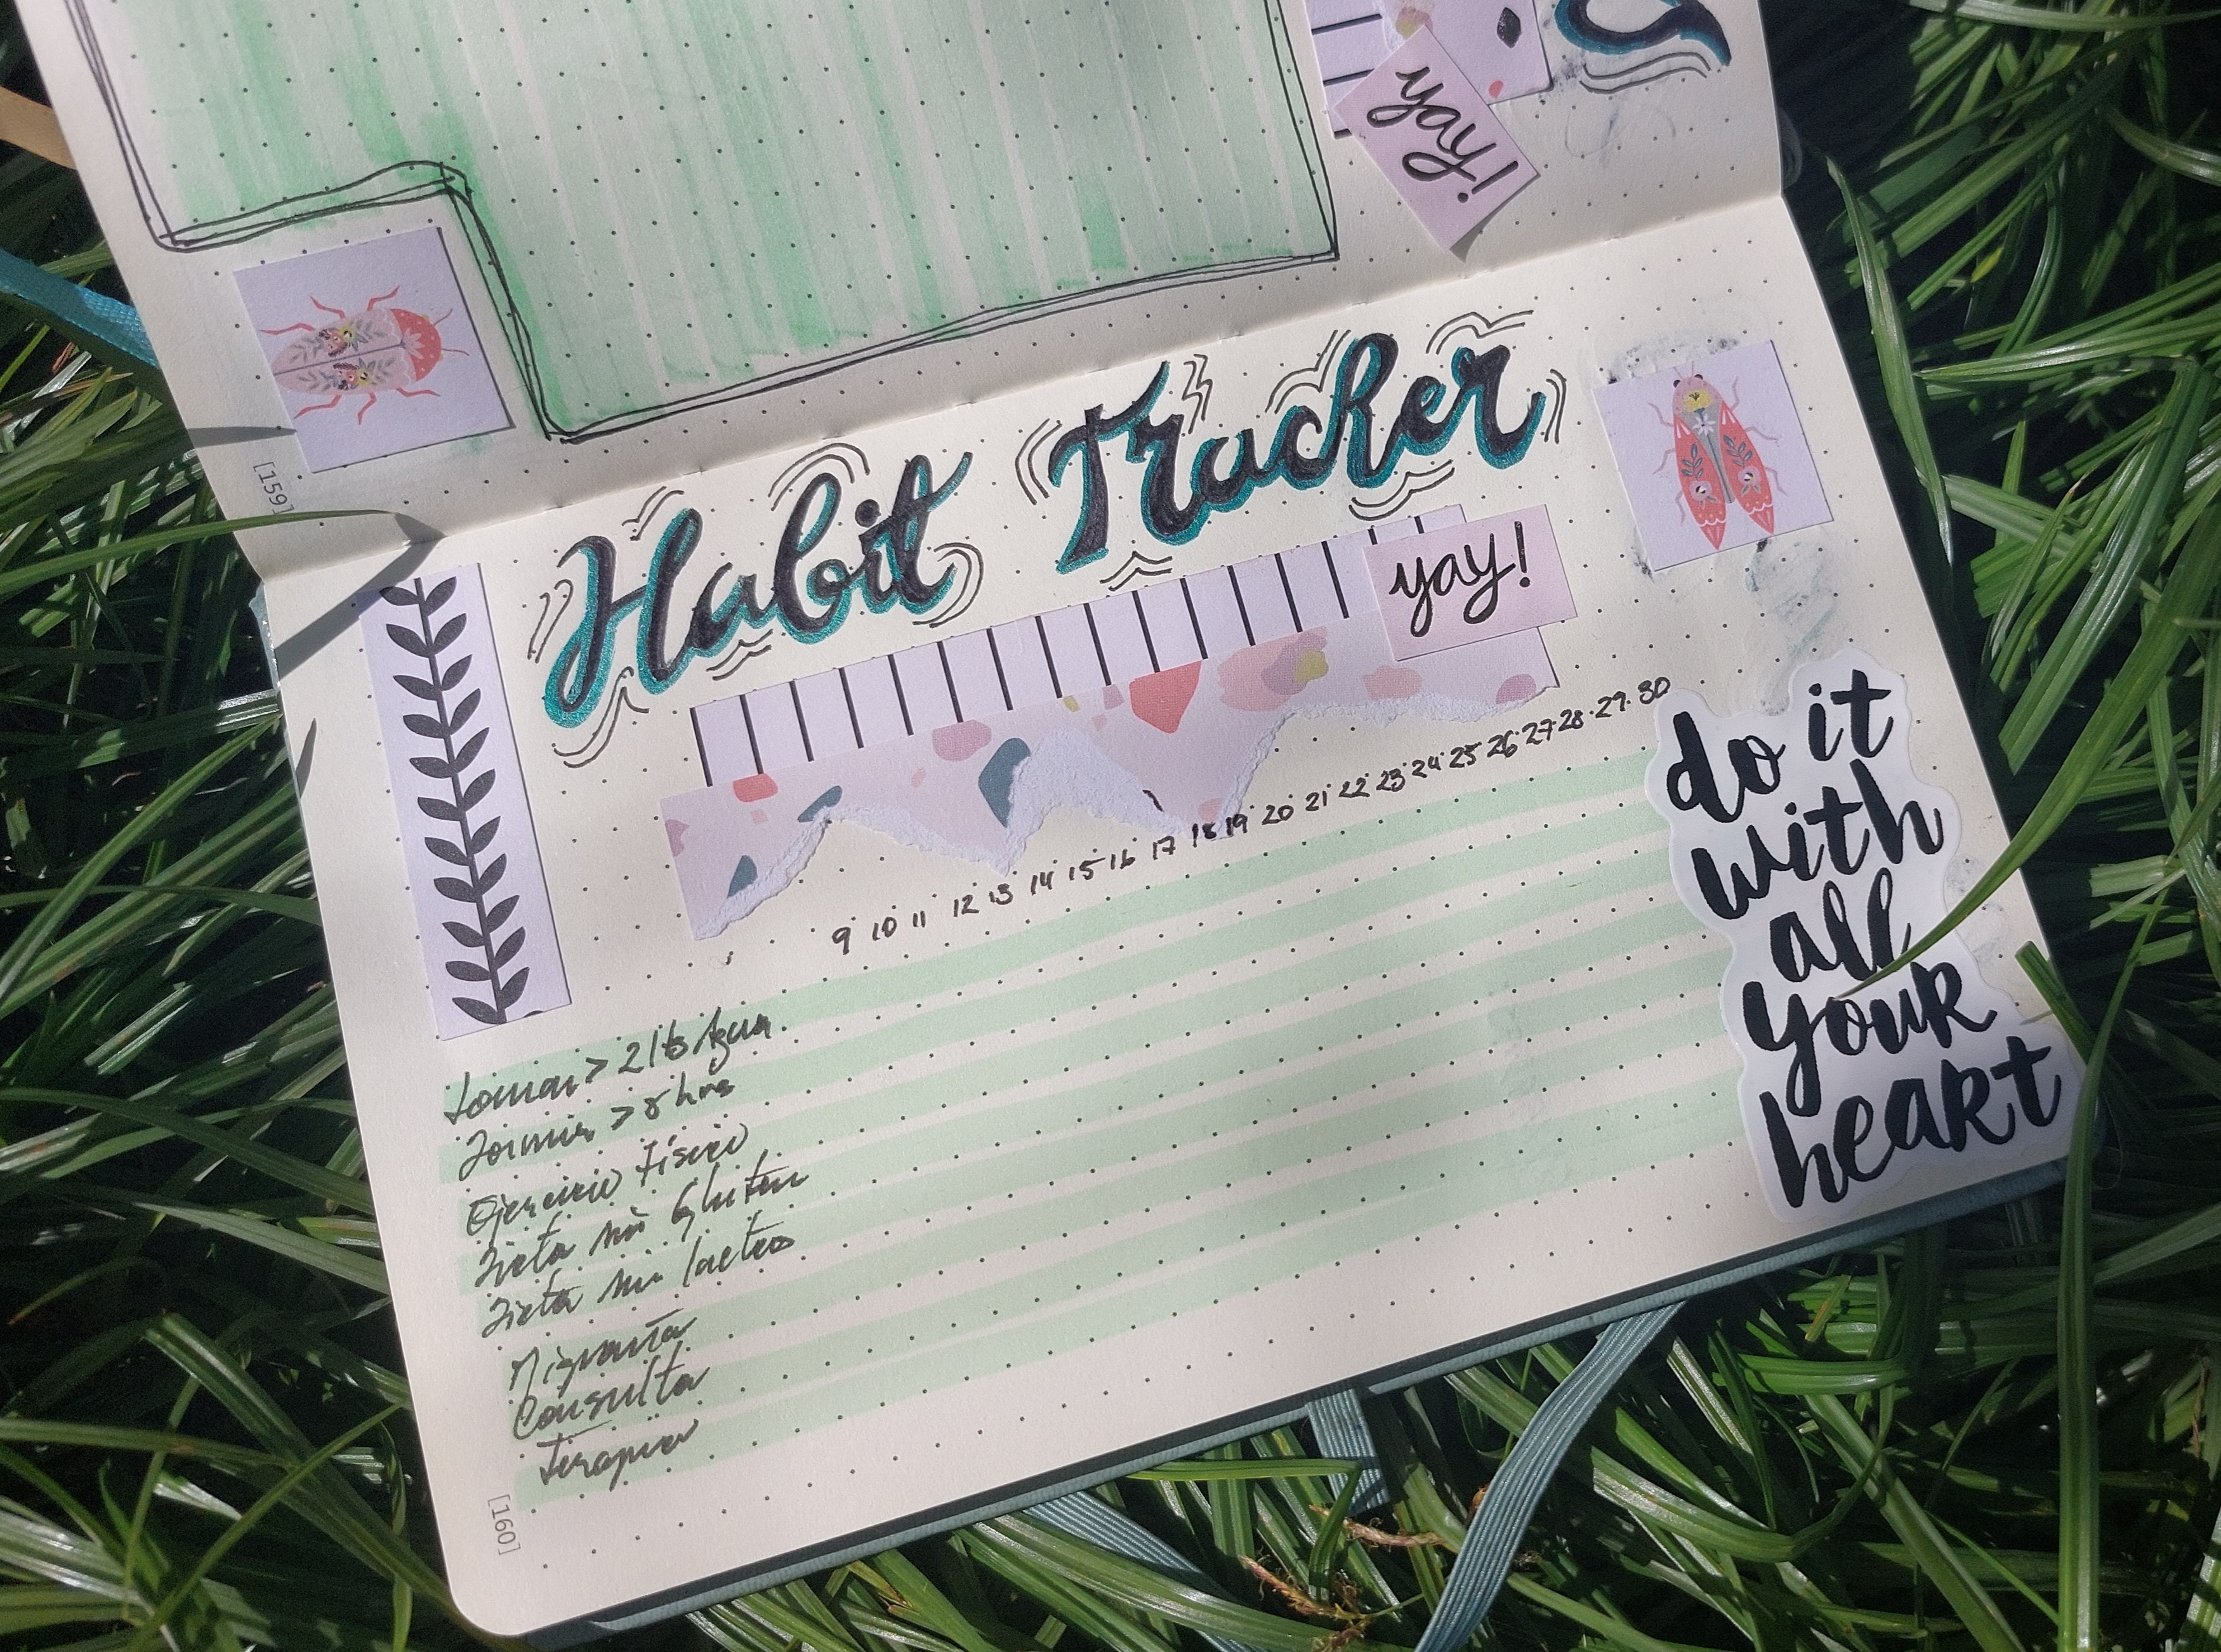 yay!
[159]
Habit Tracker
yay!
9 10 11 12 13 14 15 16 17 18 19 20 21 22 23 24 25 26 27 28 29 30
do it
with
all
your
heart
tomar > 2 lts Agua
Dormir > 8 hrs
Ejercicio Físico
Dieta sin Gluten
Dieta sin lacteos
Migraña
Consulta
Terapia
[160]